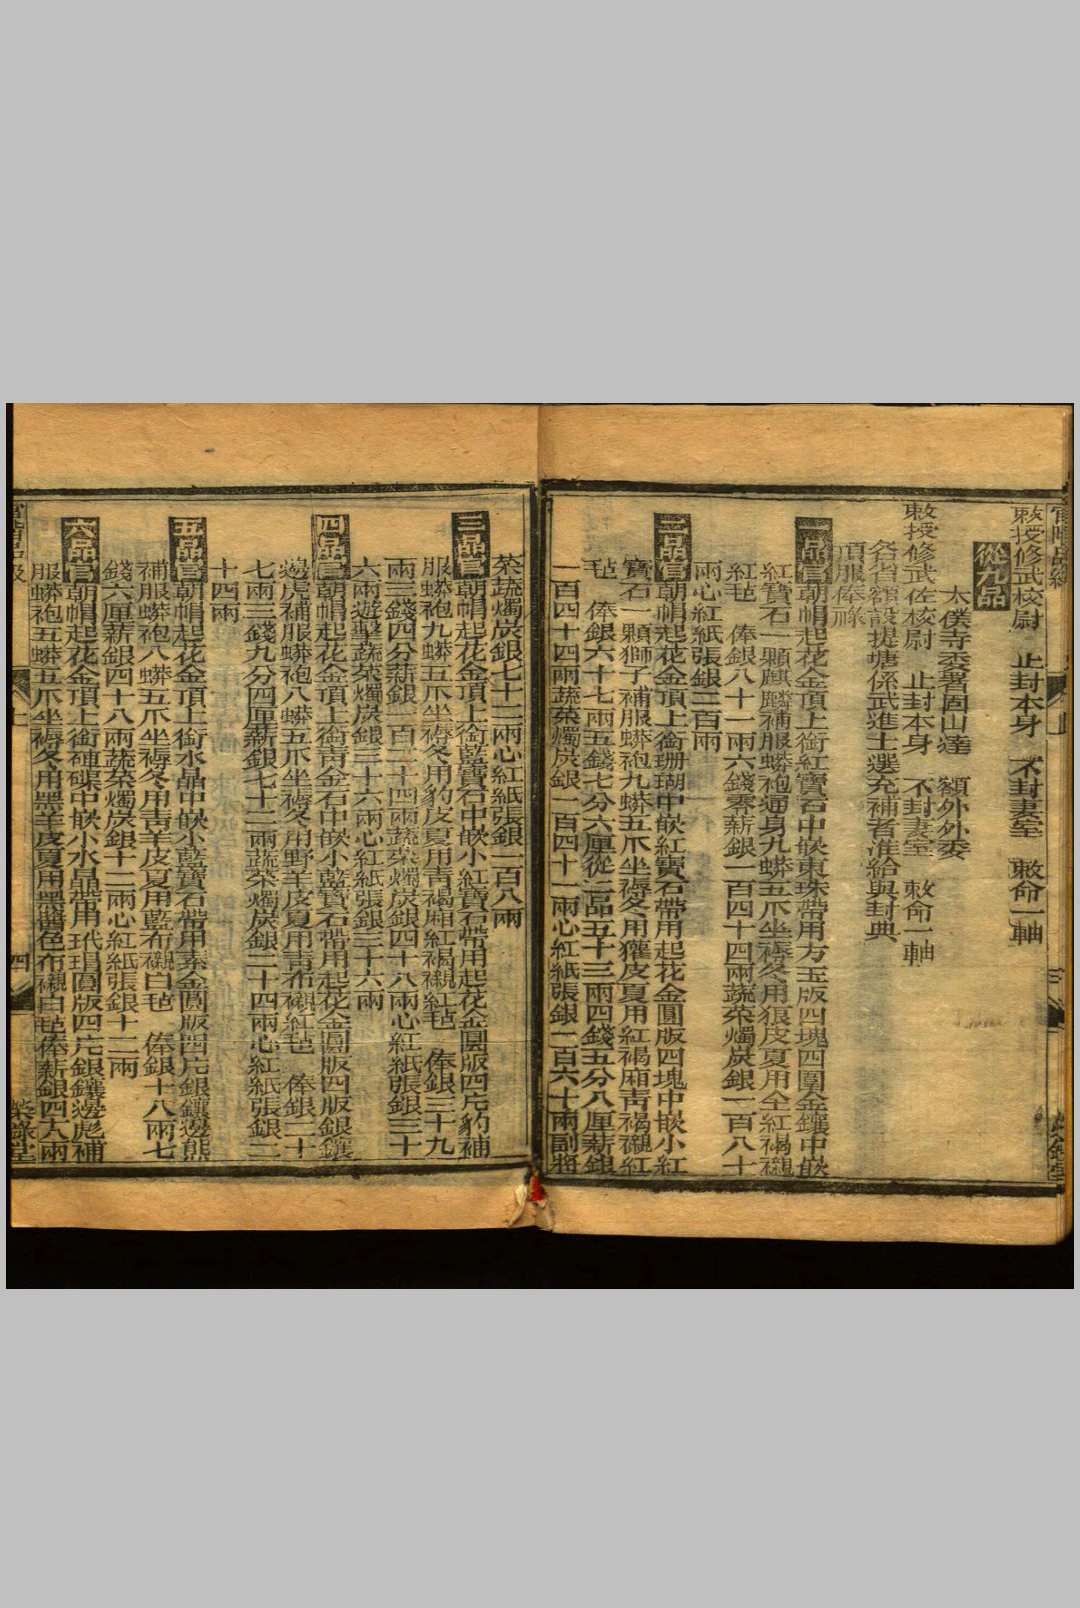 敕授修武校尉　止封本身　不封妻室　敕命一軸
從九品
太僕寺委署固山達　額外外委
敕授修武佐校尉　止封本身　不封妻室　敕命一軸
各省額設提塘係武進士選充補者准給與封典
頂服俸祿
一品官朝帽起花金頂上銜紅寶石中嵌東珠帶用方玉版四塊四圍金鑲中嵌
紅寶石一顆麒麟補服蟒袍通身九蟒五爪坐褥冬用狼皮夏用全紅褐襯
紅毡　俸銀八十一兩六錢零薪銀一百四十四兩蔬菜燭炭銀一百八十
兩心紅紙張銀二百兩
二品官朝帽起花金頂上銜珊瑚中嵌紅寶石帶用起花金圓版四塊中嵌小紅
寶石一顆獅子補服蟒袍九蟒五爪坐褥冬用獾皮夏用紅褐廂青褐襯紅
毡　俸銀六十七兩五錢七分六厘從二品五十三兩四錢五分八厘薪銀
一百四十四兩蔬菜燭炭銀一百四十一兩心紅紙張銀一百六十兩副將
菜蔬燭炭銀七十二兩心紅紙張銀一百八兩
三品官朝帽起花金頂上銜藍寶石中嵌小紅寶石帶用起花金圓版四片豹補
服蟒袍九蟒五爪坐褥冬用豹皮夏用青褐廂紅褐襯紅毡　俸銀三十九
兩三錢四分薪銀一百二十四兩蔬菜燭炭銀四十八兩心紅紙張銀三十
六兩遊擊蔬菜燭炭銀三十六兩心紅紙張銀三十六兩
四品官朝帽起花金頂上銜青金石中嵌小藍寶石帶用起花金圓版四版銀鑲
邊虎補服蟒袍八蟒五爪坐褥冬用野羊皮夏用青布襯紅毡　俸銀二十
七兩三錢九分四厘薪銀七十二兩蔬菜燭炭銀二十四兩心紅紙張銀二
十四兩
五品官朝帽起花金頂上銜水晶中嵌小藍寶石帶用素金圓版四片銀鑲邊熊
補服蟒袍八蟒五爪坐褥冬用青羊皮夏用藍布襯白毡　俸銀十八兩七
錢六厘薪銀四十八兩蔬菜燭炭銀十二兩心紅紙張銀十二兩
六品官朝帽起花金頂上銜硨磲中嵌小水晶帶用玳瑁圓版四片銀鑲邊彪補
服蟒袍五蟒五爪坐褥冬用黑羊皮夏用醬色布襯白毡俸薪銀四六兩
榮錄堂